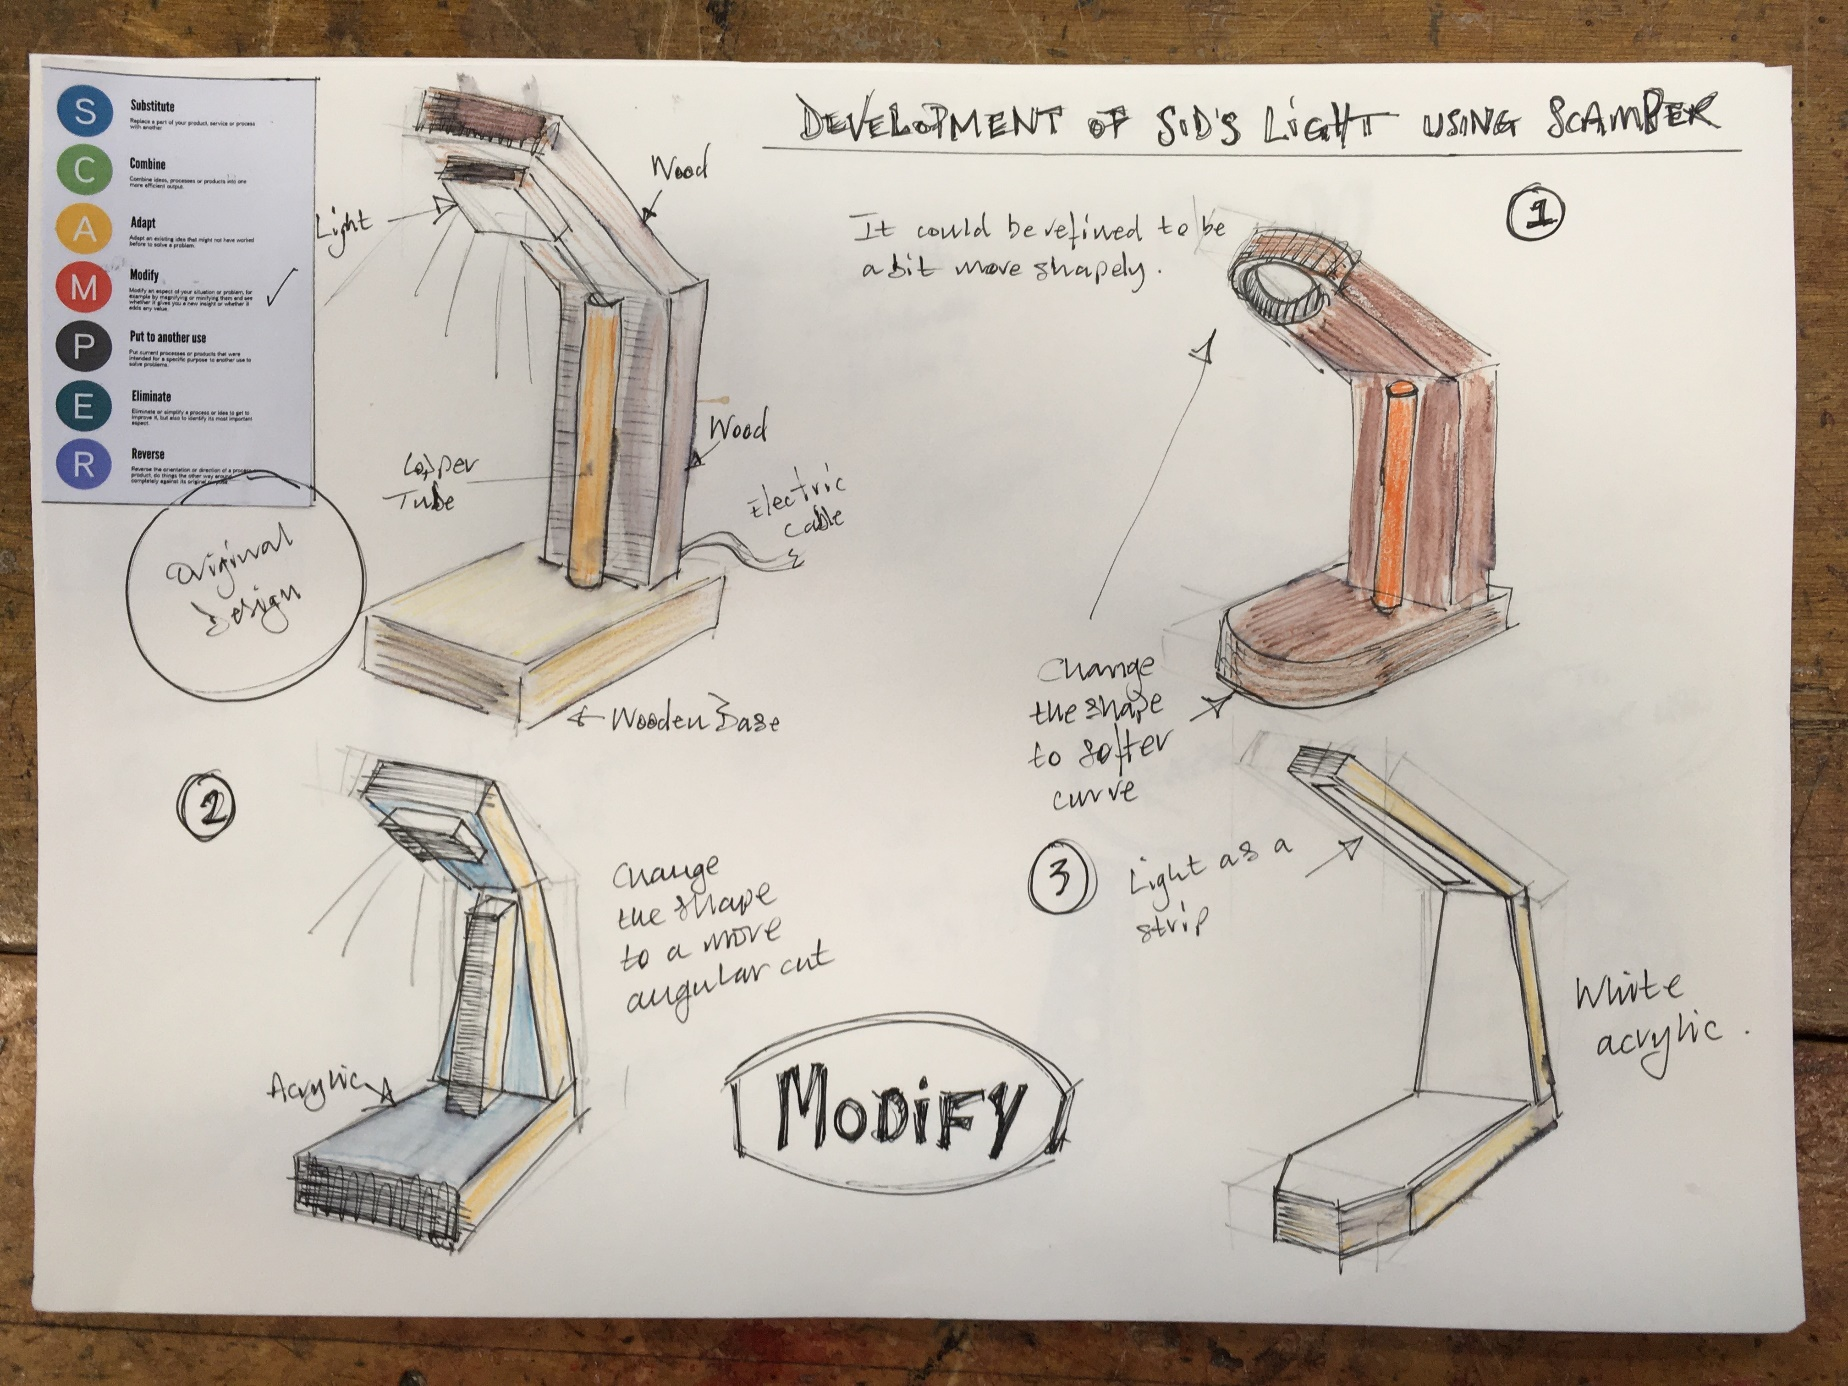 DEVELOPMENT OF SID'S LIGHT USING SCAMPER
S
Substitute
Replace a part of your product, service or process
with another
C
Combine
Combine ideas, processes or products into one
more efficient output.
A
Adapt
Adapt an existing idea that might not have worked
before to solve a problem.
M
Modify
Modify an aspect of your situation or problem, for
example by magnifying or minifying them and see
whether it gives you a new insight or whether it
adds any value.
P
Put to another use
Put current processes or products that were
intended for a specific purpose to another use to
solve problems.
E
Eliminate
Eliminate or simplify a process or idea to get to
improve it, but also to identify its most important
aspect.
R
Reverse
Reverse the orientation or direction of a process
product, do things the other way around
completely against its original purpose
Light
Wood
Wood
Copper
Tube
Electric
Cable
Original
Design
Wooden Base
1
It could be refined to be
a bit more shapely.
Change
the shape
to softer
curve
2
Change
the shape
to a more
angular cut
Acrylic
MODiFY
3
Light as a
strip
White
acrylic.